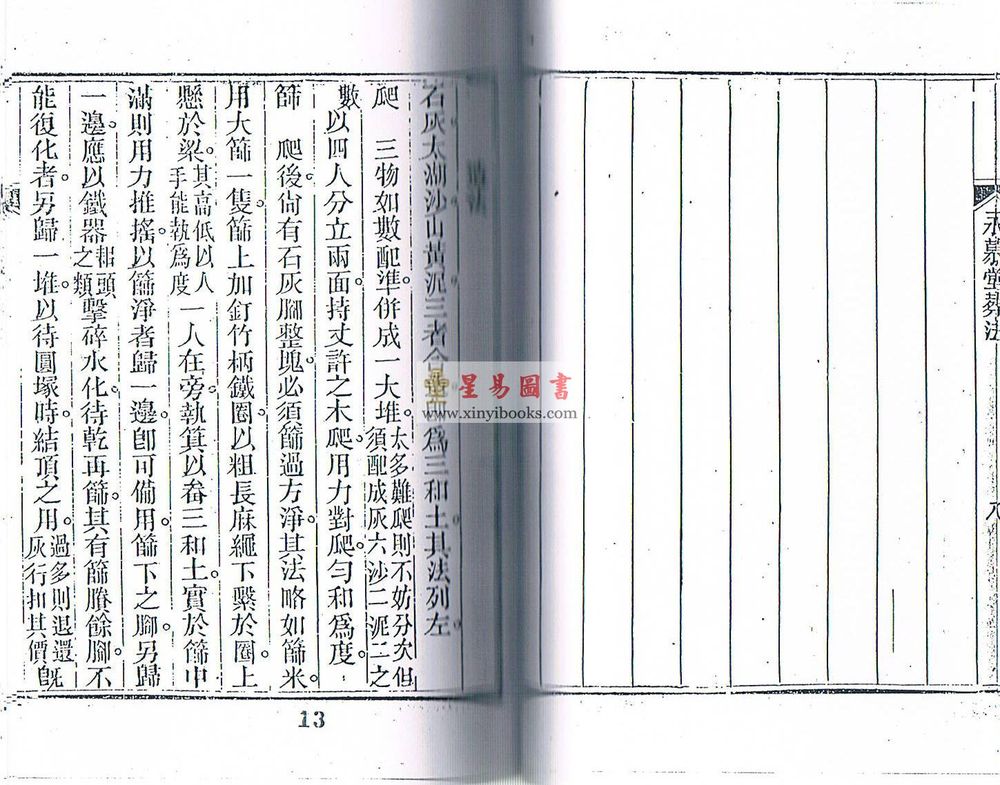 永慕堂葬法
八
法
石灰太湖沙山黃泥三者合為三和土其法列左
爬 三物如數配準。併成一大堆。太多難爬則不妨分次但須配成灰六沙二泥二之
數 以四人分立兩面。持丈許之木爬。用力對爬。勻和為度。
篩 爬後。尙有石灰腳整塊。必須篩過方淨。其法略如篩米。
用大篩一隻。篩上加釘竹柄鐵圈。以粗長麻繩下繫於圈。上
懸於梁。其高低以人手能執為度 一人在旁。執箕以畚三和土。實於篩中
滿則用力推搖。以篩淨者歸一邊。卽可備用。篩下之腳。另歸
一邊。應以鐵器頭之類擊碎水化。待乾再篩。其有篩賸餘腳。不
能復化者。另歸一堆。以待圓塚時。結頂之用。過多則退還灰行扣其價旣
13
星易圖書
www.xinyibooks.com